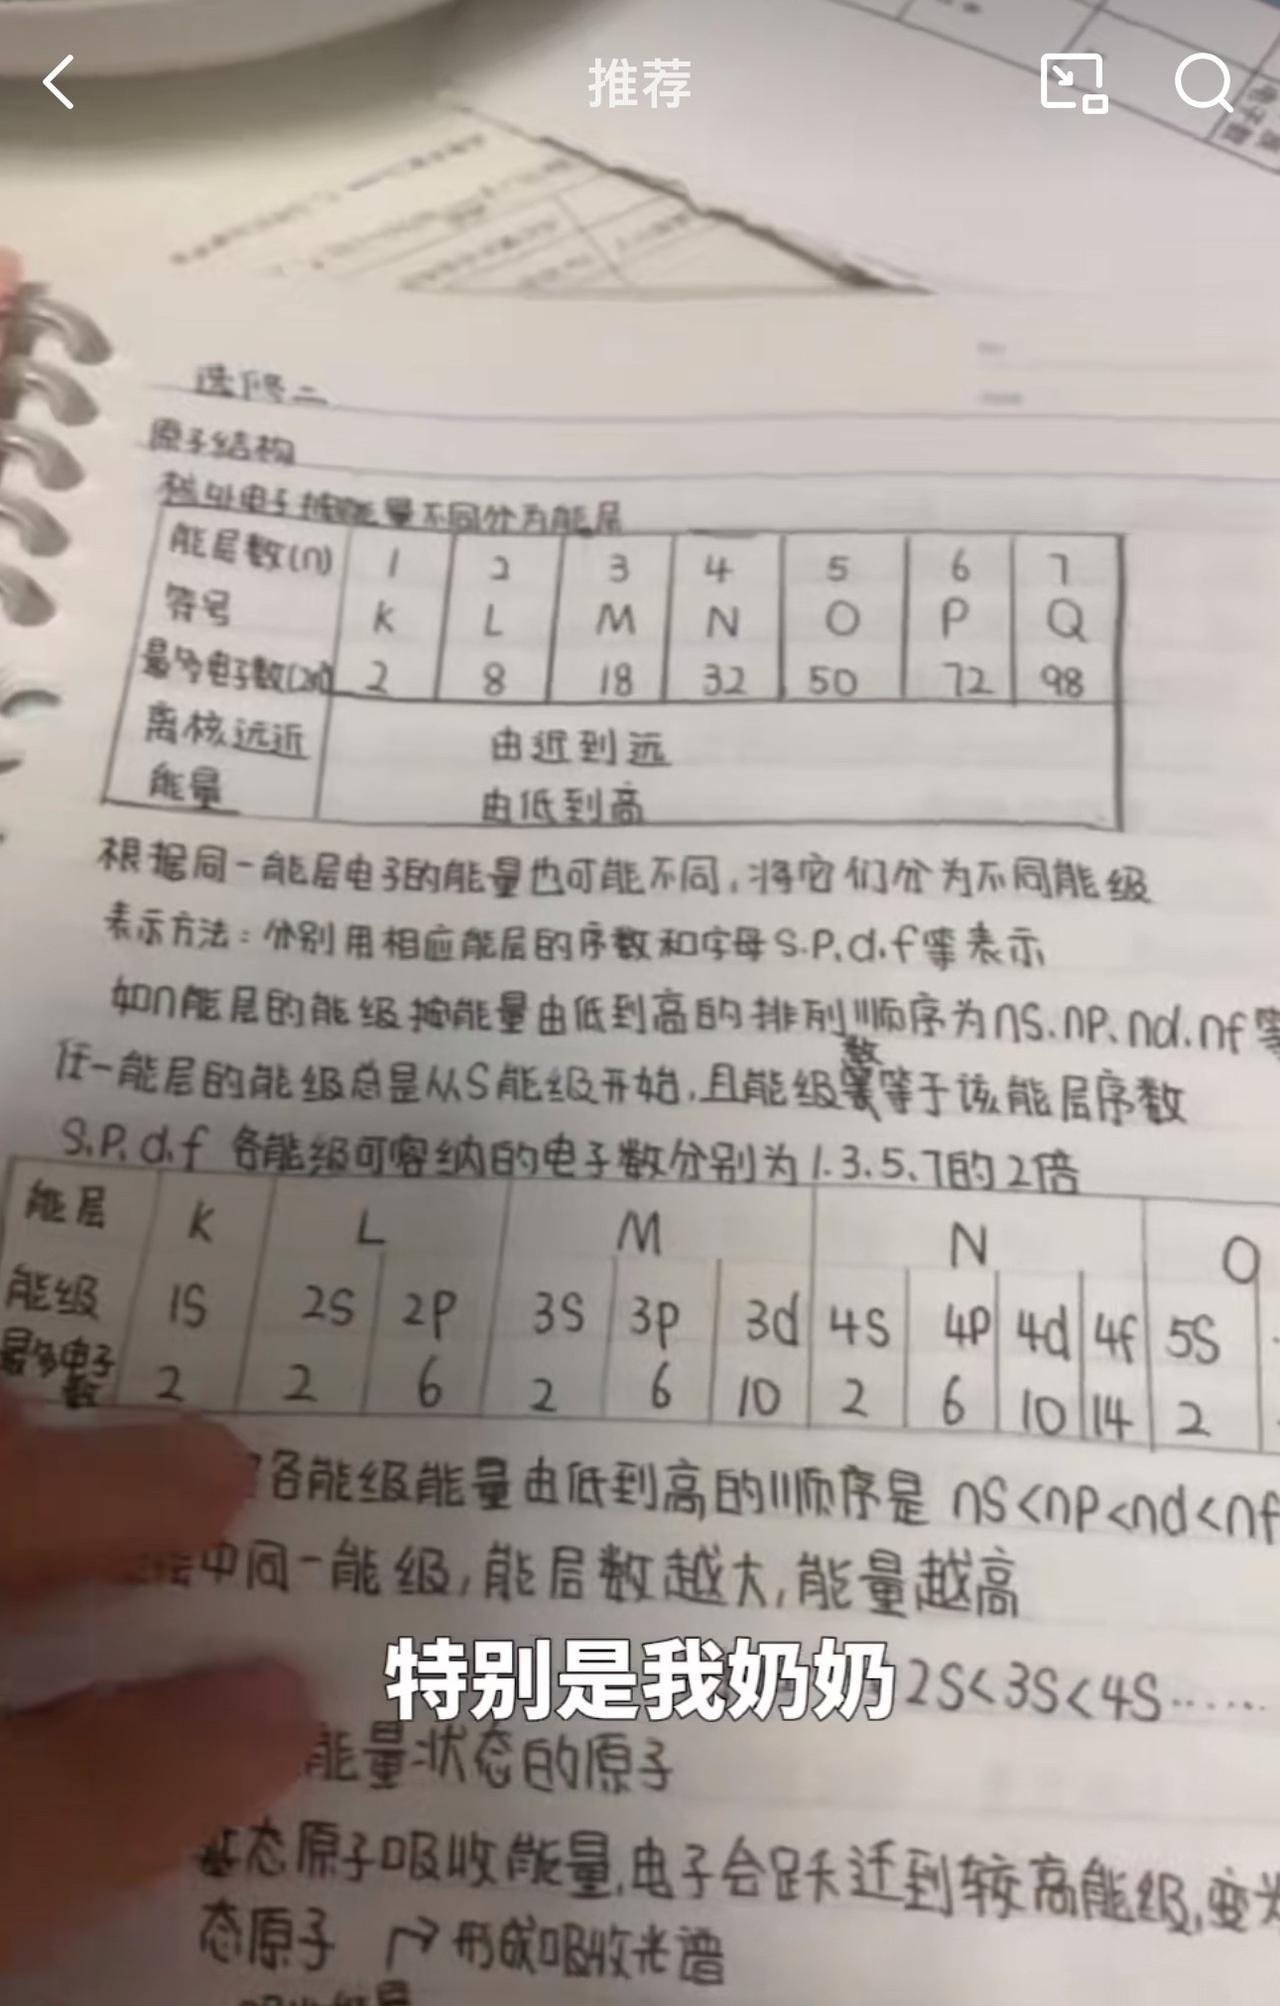 推荐
选修二
原子结构
核外电子按能量不同分为能层
能层数(n) 1 2 3 4 5 6 7
符号 K L M N O P Q
最多电子数(2n²) 2 8 18 32 50 72 98
离核远近 由近到远
能量 由低到高
根据同一能层电子的能量也可能不同,将它们分为不同能级
表示方法:分别用相应能层的序数和字母s.p.d.f等表示
如n能层的能级按能量由低到高的排列顺序为ns.np.nd.nf等
任一能层的能级总是从s能级开始,且能级数等于该能层序数
s.p.d.f 各能级可容纳的电子数分别为1.3.5.7的2倍
能层 K L M N O
能级 1s 2s 2p 3s 3p 3d 4s 4p 4d 4f 5s
最多电子数 2 2 6 2 6 10 2 6 10 14 2
各能级能量由低到高的顺序是 ns<np<nd<nf
中同一能级,能层数越大,能量越高
特别是我奶奶
2s<3s<4s……
能量状态的原子
基态原子吸收能量,电子会跃迁到较高能级,变为
态原子 → 形成吸收光谱